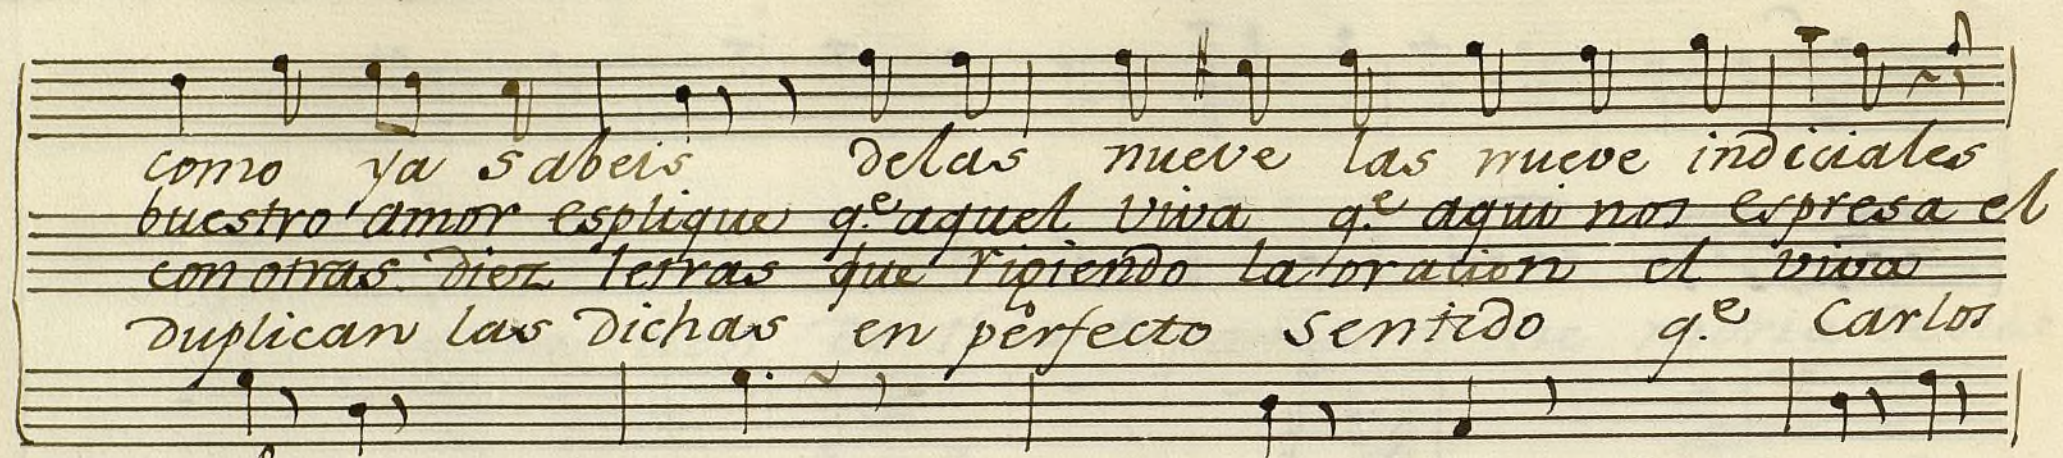 como ya sabeis delas nueve las nueve indiciales
buestro amor esplique q.e aquel viva q.e aqui nos espresa el
con otras diez letras que rigiendo la oracion el viva
Duplican las Dichas en perfecto sentido q.e Carlos